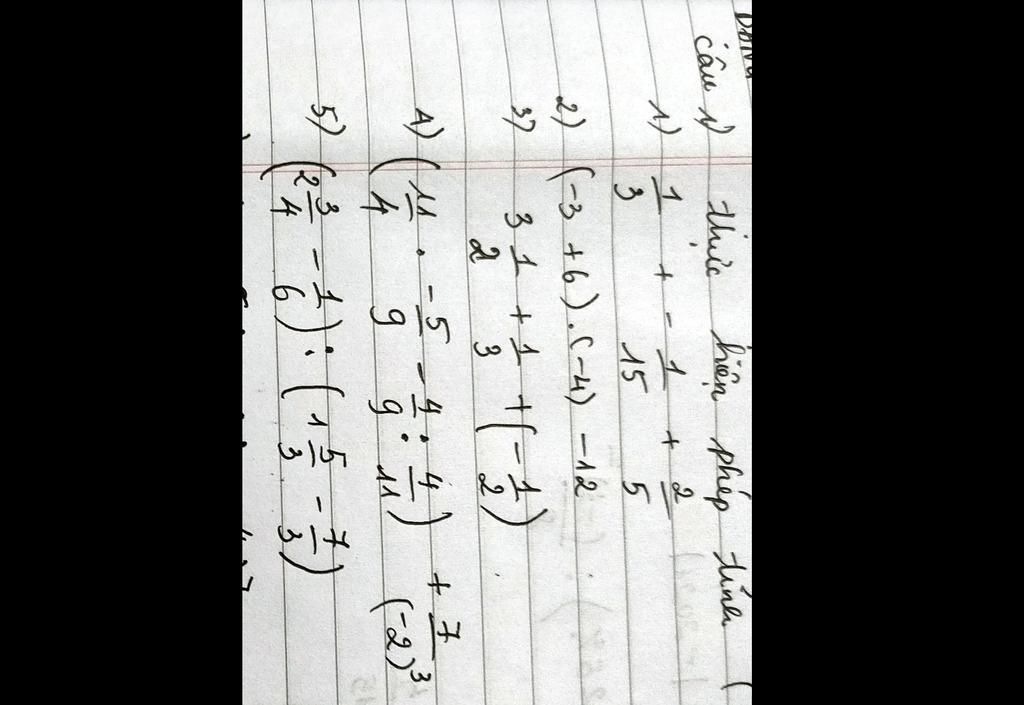 câu 1) thực hiện phép tính (
1) 1/3 + -1/15 + 2/5
2) (-3 + 6) . (-4) - 12
3) 3 1/2 + 1/3 + (-1/2)
4) (11/4 . -5/9 - 4/9 : 4/11) + 7/(-2)³
5) (2 3/4 - 1/6) : (1 5/3 - 7/3)